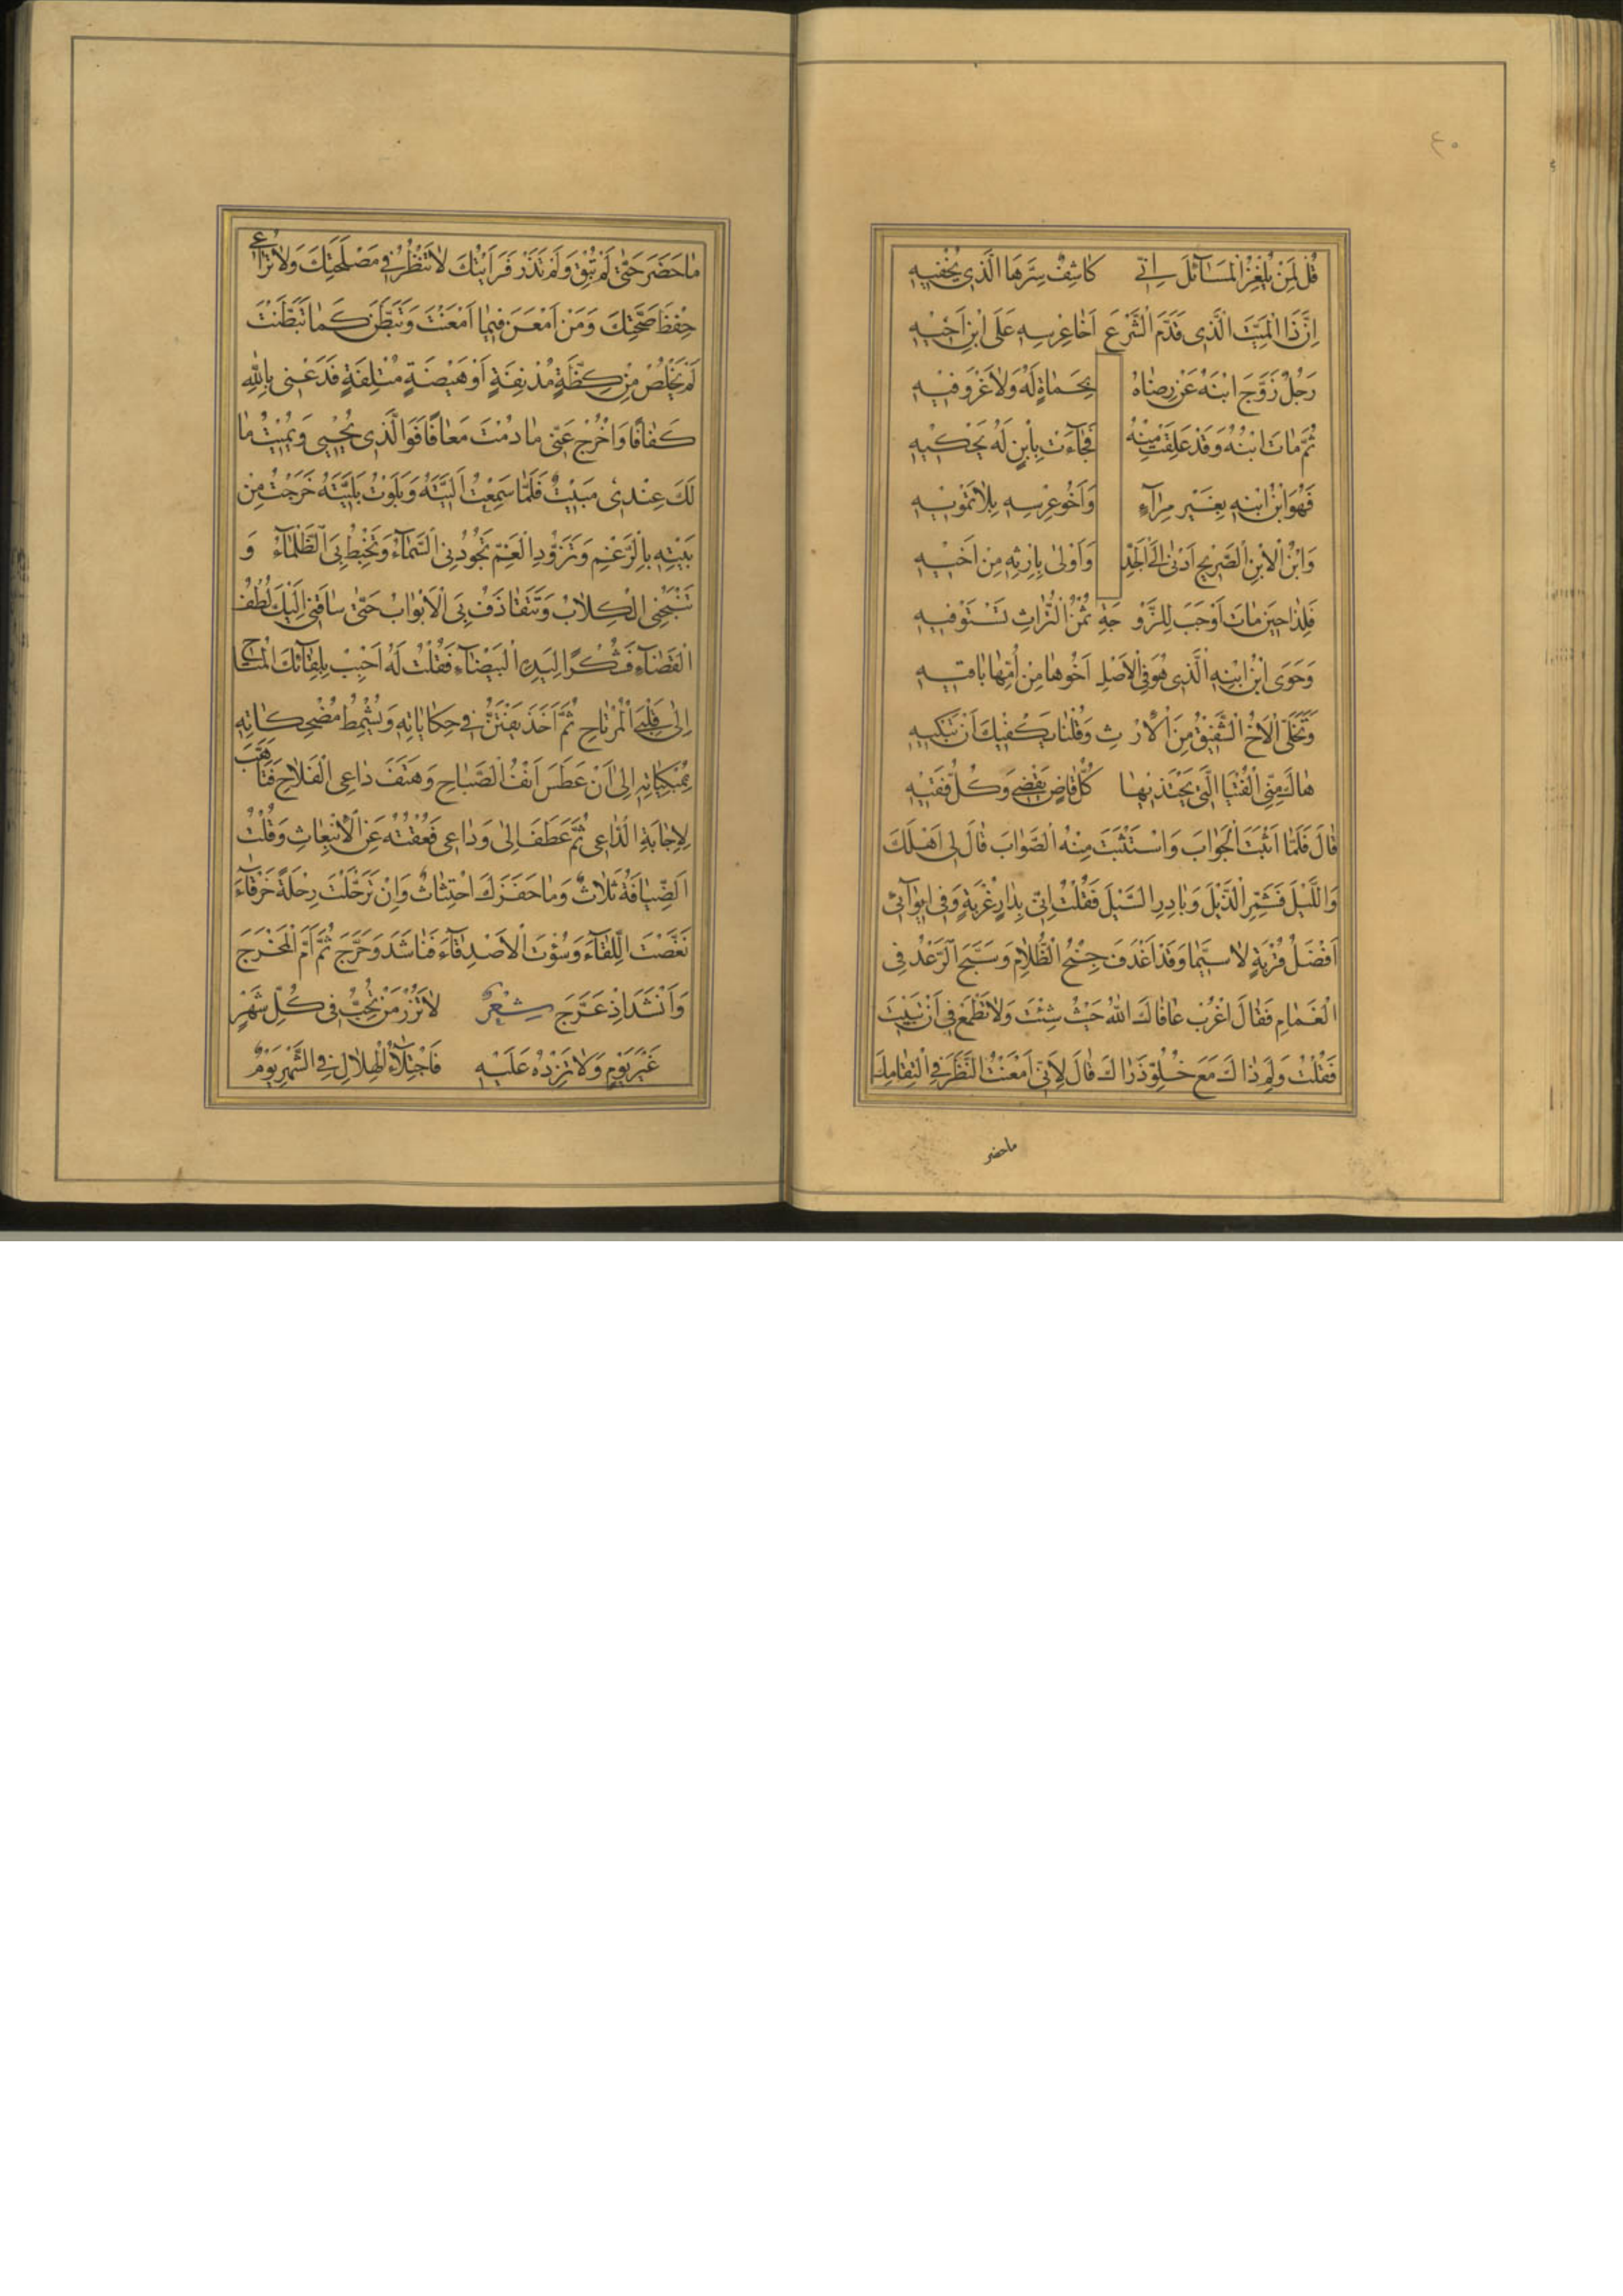 ٤٠
قُلْ لِمَنْ يُلْغِزُ الْمَسَآئِلَ اِنّٖى كَاشِفٌ سِرَّهَا الَّذِى يُخْفِيهِ
اِنَّ ذَا الْمَيِّتَ الَّذِى قَدَّمَ الشَّرْعُ اَخَا عِرْسِهِ عَلَى ابْنِ اَخِيهِ
رَجُلٌ زَوَّجَ ابْنَهُ عَنْ رِضَاهُ بِحَمَاةٍ لَهُ وَلَا غَرْوَ فِيهِ
ثُمَّ مَاتَ ابْنُهُ وَقَدْ عَلِقَتْ مِنْهُ فَجَآءَتْ بِابْنٍ لَهُ يَحْكِيهِ
فَهُوَ ابْنُ ابْنِهِ بِغَيْرِ مِرَآءٍ وَاَخُو عِرْسِهِ بِلَا تَمْوِيهِ
وَابْنُ الْاِبْنِ الصَّرِيحِ اَدْنَى اِلَى الْجَدِّ وَاَوْلَى بِاِرْثِهِ مِنْ اَخِيهِ
فَلِذَا حِينَ مَاتَ اَوْجَبَ لِلزَّوْ جَةِ ثُمْنُ التُّرَاثِ تَسْتَوْفِيهِ
وَحَوَى ابْنُ ابْنِهِ الَّذِى هُوَ فِى الْاَصْلِ اَخُوهَا مِنْ اُمِّهَا بَاقِيهِ
وَتَخَلَّى الْاَخُ الشَّقِيقُ مِنَ الْاِرْ ثِ وَقُلْنَا يَكْفِيكَ اَنْ تَبْكِيهِ
هَاكَ مِنِّى الْفُتْيَا الَّتِى يَحْتَذِيهَا كُلُّ قَاضٍ يَقْضِى وَكُلُّ فَقِيهِ
قَالَ فَلَمَّا اَثْبَتَ الْجَوَابَ وَاسْتَثْبَتَ مِنْهُ الصَّوَابَ قَالَ لِى اَهْلَكَ
وَاللَّيْلَ فَشَمِّرِ الذَّيْلَ وَبَادِرِ السَّيْلَ فَقُلْتُ اِنِّى بِدَارِ غُرْبَةٍ وَفِى اِيوَآئِى
اَفْضَلُ قُرْبَةٍ لَا سِيَّمَا وَقَدْ اَغْدَفَ جِنْحُ الظَّلَامِ وَسَبَّحَ الرَّعْدُ فِى
الْغَمَامِ فَقَالَ اغْرُبْ عَافَاكَ اللهُ حَيْثُ شِئْتَ وَلَا تَطْمَعْ فِى اَنْ تَبِيتَ
فَقُلْتُ وَلِمَ ذَاكَ مَعَ خُلُوِّ ذَرَاكَ قَالَ لِاَنِّى اَمْعَنْتُ النَّظَرَ فِى الْتِقَامِكَ
ماحضر
مَا حَضَرَ حَتَّى لَمْ تُبْقِ وَلَمْ تَذَرْ فَرَاَيْتُكَ لَا تَنْظُرُ فِى مَصْلَحَتِكَ وَلَا تُرَاعِى
حِفْظَ صِحَّتِكَ وَمَنْ اَمْعَنَ فِيمَا اَمْعَنْتَ وَتَبَطَّنَ كَمَا تَبَطَّنْتَ
لَمْ يَخْلُصْ مِنْ كِظَّةٍ مُدْنِفَةٍ اَوْ هَيْضَةٍ مُتْلِفَةٍ فَدَعْنِى بِاللهِ
كَفَافًا وَاخْرُجْ عَنِّى مَا دُمْتَ مُعَافًا فَوَالَّذِى يُحْيِى وَيُمِيتُ مَا
لَكَ عِنْدِى مَبِيتٌ فَلَمَّا سَمِعْتُ اَلِيَّتَهُ وَبَلَوْتُ بَلِيَّتَهُ خَرَجْتُ مِنْ
بَيْتِهِ بِالرَّغْمِ وَتَزَوُّدِ الْغَمِّ تَجُودُنِى السَّمَآءُ وَتَخْبِطُ بِىَ الظَّلْمَآءُ وَ
تَنْبَحُنِى الْكِلَابُ وَتَتَقَاذَفُ بِىَ الْاَبْوَابُ حَتَّى سَاقَنِى اِلَيْكَ لُطْفُ
الْقَضَآءِ فَشُكْرًا لِيَدِهِ الْبَيْضَآءِ فَقُلْتُ لَهُ اَحْبِبْ بِلِقَآئِكَ الْمُتَاحِ
اِلَى قَلْبِىَ الْمُرْتَاحِ ثُمَّ اَخَذَ يَفْتَنُّ فِى حِكَايَاتِهِ وَيُشْمِطُ مُضْحِكَاتِهِ
بِمُبْكِيَاتِهِ اِلَى اَنْ عَطَسَ اَنْفُ الصَّبَاحِ وَهَتَفَ دَاعِى الْفَلَاحِ فَتَاَهَّبَ
لِاِجَابَةِ الدَّاعِى ثُمَّ عَطَفَ اِلَى وَدَاعِى فَعُقْتُهُ عَنِ الْاِنْبِعَاثِ وَقُلْتُ
اَلضِّيَافَةُ ثَلَاثٌ وَمَا حَفَزَكَ احْتِثَاثٌ وَاِنْ تَرَحَّلْتَ رِحْلَةً خَرْقَآءَ
نَغَّصْتَ اللِّقَآءَ وَسُؤْتَ الْاَصْدِقَآءَ فَنَاشَدَ وَحَرَّجَ ثُمَّ اَمَّ الْمَخْرَجَ
وَاَنْشَدَ اِذْ عَرَّجَ شِعْرٌ لَا تَزُرْ مَنْ تُحِبُّ فِى كُلِّ شَهْرٍ
غَيْرَ يَوْمٍ وَلَا تَزِدْهُ عَلَيْهِ فَاجْتِلَآءُ الْهِلَالِ فِى الشَّهْرِ يَوْمٌ